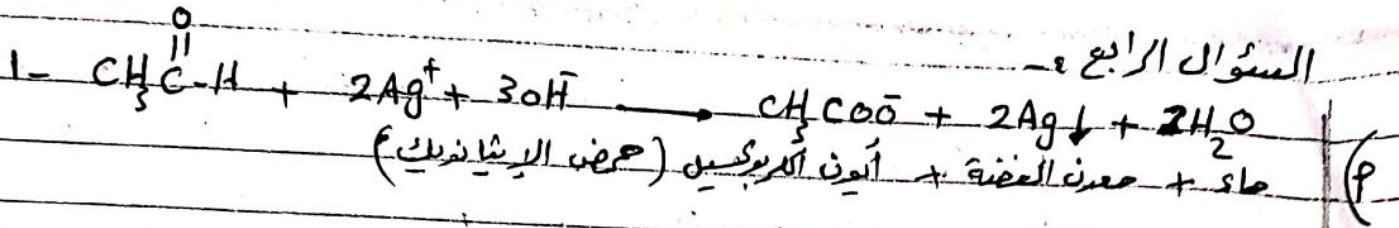 السؤال الرابع :-
أ)
O
||
1- CH₃C-H + 2Ag⁺ + 3OH⁻ → CH₃COO⁻ + 2Ag↓ + 2H₂O
ماء + معدن الفضة + أيون الكربوكسيل (حمض الإيثانويك)